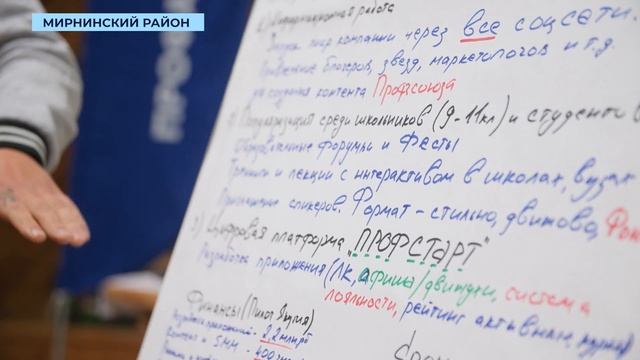 МИРНИНСКИЙ РАЙОН
1) Информационная работа
Запуск пиар компании через все соцсети.
Привлечение блогеров, звёзд, маркетологов и т.д.
для создания контента Профсоюза
2) Популяризация среди школьников (9-11 кл) и студенто
Образовательные форумы и фесты
Тренинги и лекции с интерактивом в школах, вузах
Приглашение спикеров. Формат - стильно, движово,
3) Цифровая платформа "ПРОФСТАРТ"
Разработка приложения (ЛК, афиша/движухи, система
лояльности, рейтинг активных,
Финансы (Пилот Якутия)
2,2 млн руб
Контент и SMM - 400